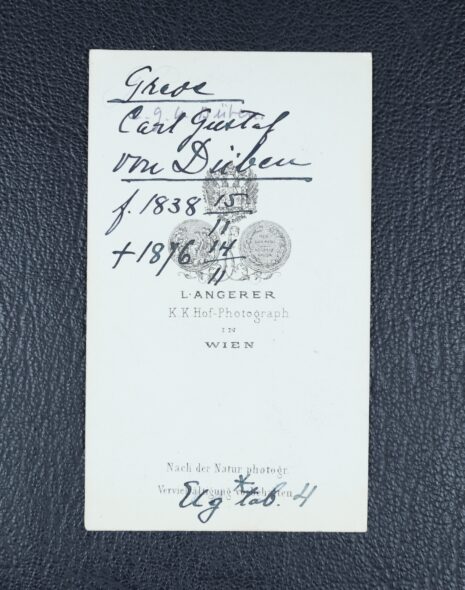 Greve
Carl Gustaf
von Düben
f. 1838 15/11
+ 1876 14/11
L. ANGERER
K.K. Hof-Photograph
IN
WIEN
Nach der Natur photogr.
Vervielfältigung vorbehalten.
tab. 4